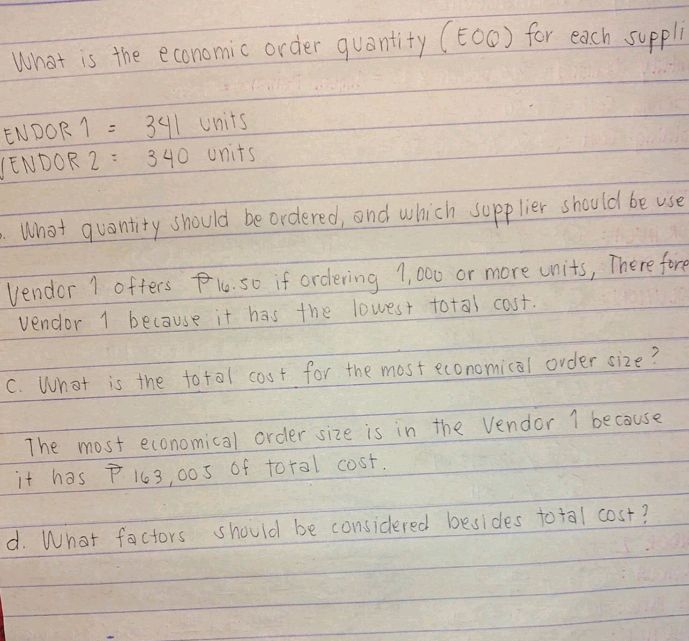 What is the economic order quantity (EOQ) for each suppli
ENDOR 1 = 341 units
VENDOR 2 = 340 units
. What quantity should be ordered, and which supplier should be use
Vendor 1 offers ₱16.50 if ordering 1,000 or more units, Therefore
vendor 1 because it has the lowest total cost.
C. What is the total cost for the most economical order size?
The most economical order size is in the Vendor 1 because
it has ₱ 163,005 of total cost.
d. What factors should be considered besides total cost?